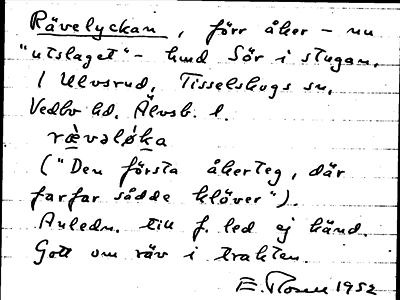 Rävelyckan, förr åker – nu
"utslaget" – hmd Sör i stugan,
/ Ulvsrud, Tisselskogs sn,
Vedbo hd. Älvsb. l.
rævəløka
("Den första åkerteg, där
farfar sådde klöver").
Anledn. till f. led ej känd.
Gott om räv i trakten.
E. 1952